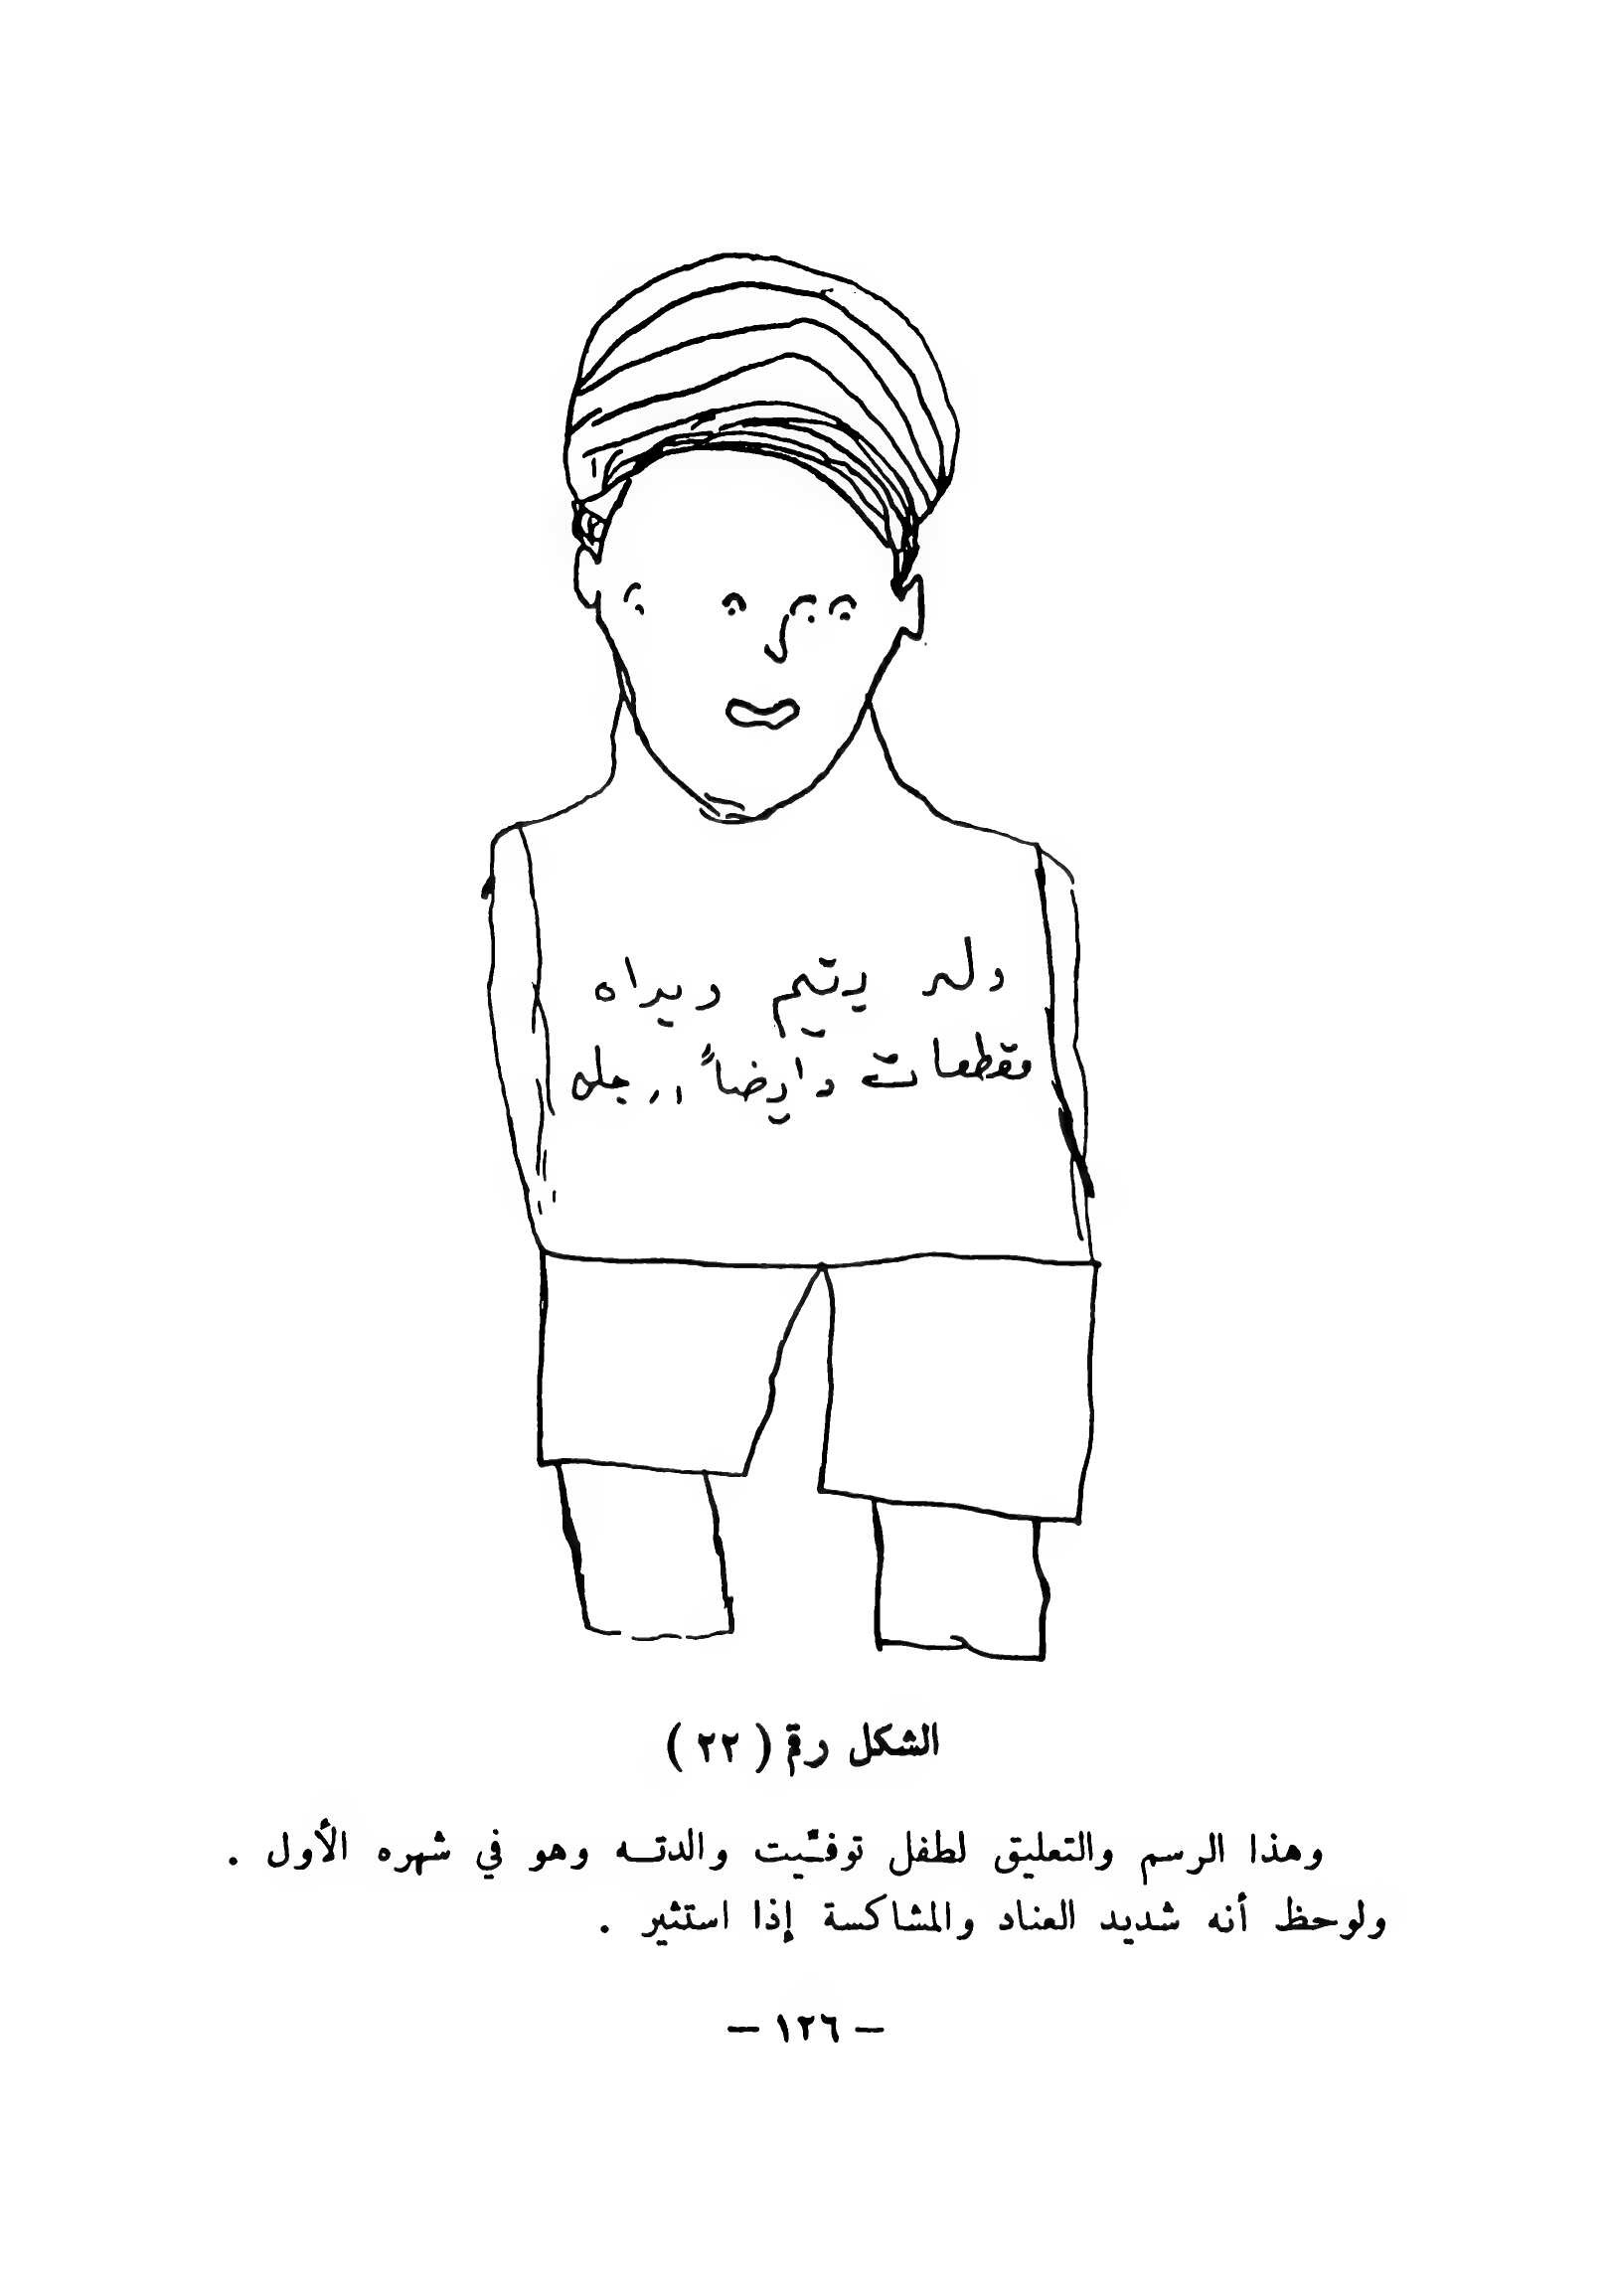 ولد يتيم ويداه
مقطعات وايضاً ارجله
الشكل رقم (٢٢)
وهذا الرسم والتعليق لطفل توفّيت والدتــه وهو في شهره الأول .
ولوحظ أنه شديد العناد والمشاكسة إذا استثير .
– ١٢٦ –